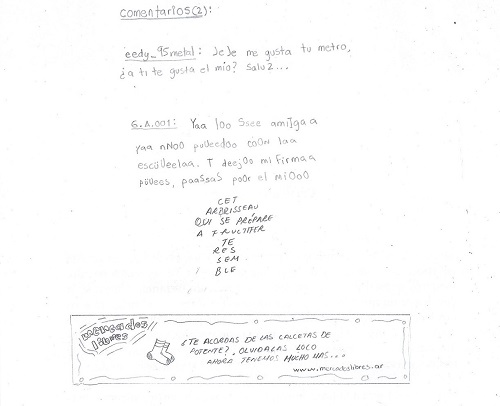 comentarios(2):
eedy_95metal: JeJe me gusta tu metro,
¿a ti te gusta el mio? Salu2...
G.A.001: Yaa loo Ssee amiIgaa
yaa nNoO puVeedoo coOn laa
escüVeelaa. T deejOo mi firmaa
püVeos, paaSsaS poOr el miOoO
CET
ARBRISSEAU
QUI SE PRÉPARE
A FRUCTIFER
TE
RES
SEM
BLE
mercados
libres
¿TE ACORDAS DE LAS CALCETAS DE
POTENTE? OLVIDALAS LOCO
AHORA TENEMOS MUCHO MAS...
www.mercadoslibres.ar